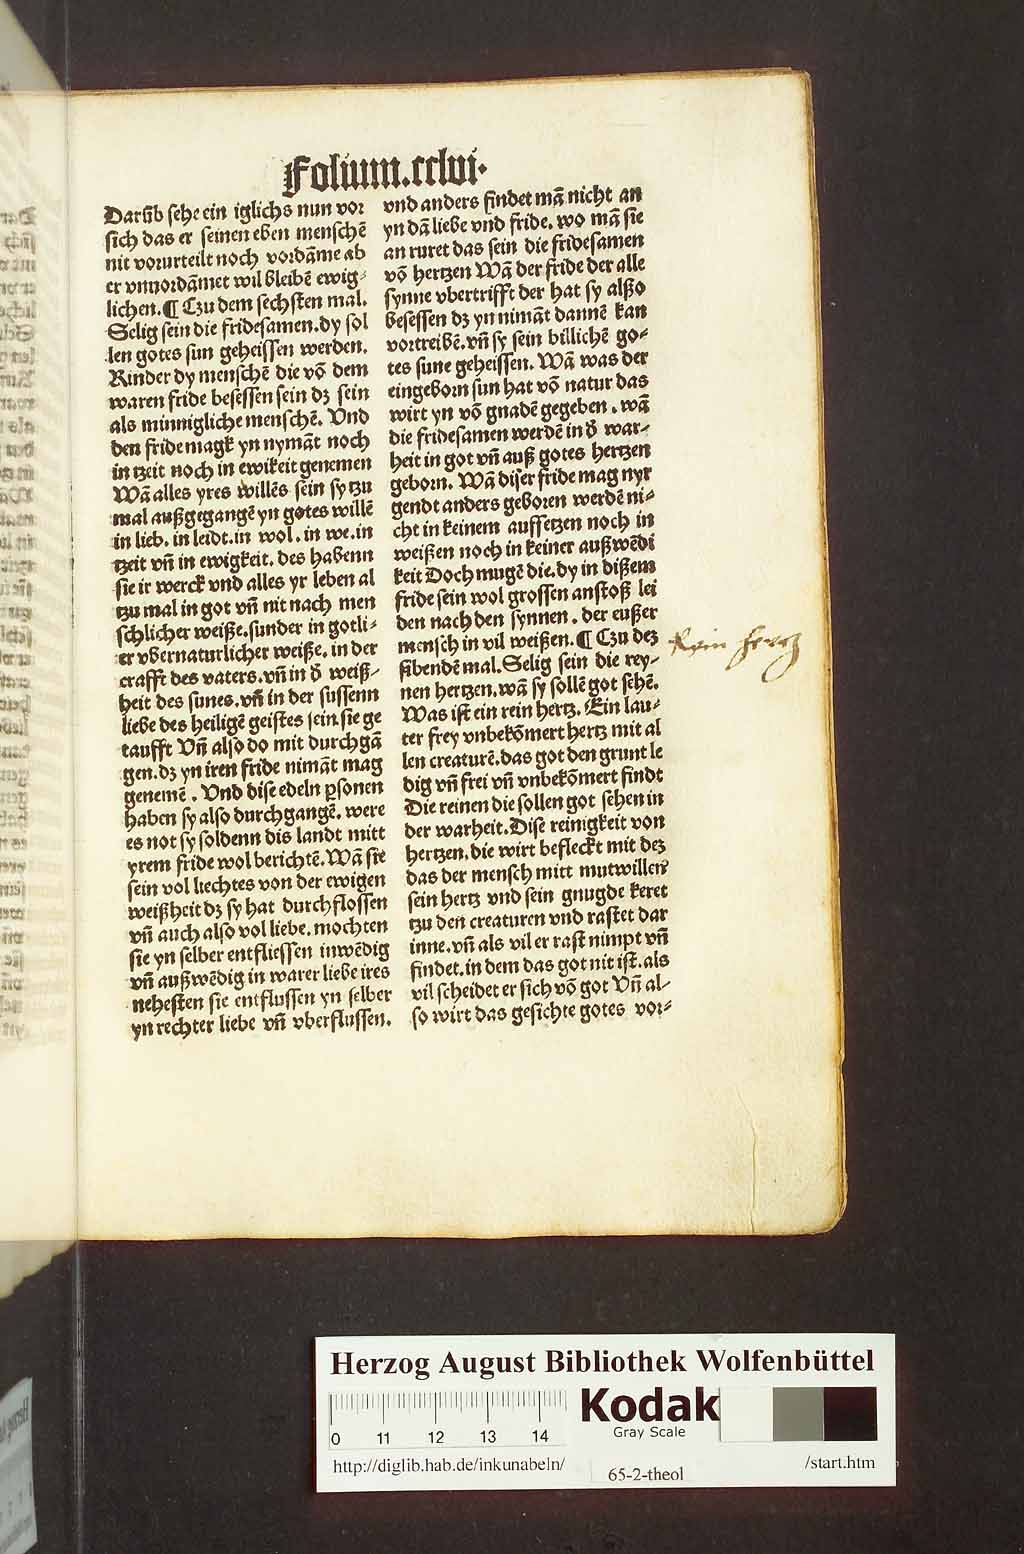 Folium.cclvi.
Darūb sehe ein iglichs nun vor
sich das er seinen eben menschē
nit vorurteilt noch vordāme ab
er vnuordāmet wil bleibē ewig-
lichen.¶ Czu dem sechsten mal.
Selig sein die fridesamen.dy sol
len gotes sun geheissen werden.
Kinder dy menschē die vō dem
waren fride besessen sein dz sein
als minnigliche menschē. Vnd
den fride magk yn nymāt noch
in tzeit noch in ewikeit genemen
Wā alles yres willēs sein sy tzu
mal außgegangē yn gotes willē
in lieb. in leidt.in wol. in we.in
tzeit vñ in ewigkeit. des habenn
sie ir werck vnd alles yr leben al
tzu mal in got vñ nit nach men
schlicher weiße.sunder in gotli-
er vbernaturlicher weiße. in der
crafft des vaters.vñ in d̄ weiß-
heit des sunes.vñ in der sussenn
liebe des heiligē geistes sein sie ge
taufft Vñ also do mit durchgā
gen.dz yn iren fride nimāt mag
genemē . Vnd dise edeln ꝑsonen
haben sy also durchgangē. were
es not sy soldenn dis landt mitt
yrem fride wol berichtē.Wā sie
sein vol liechtes von der ewigen
weißheit dz sy hat durchflossen
vñ auch also vol liebe. mochten
sie yn selber entfliessen inwēdig
vñ außwēdig in warer liebe ires
nehesten sie entflussen yn selber
yn rechter liebe vñ vberflussen.
vnd anders findet mā nicht an
yn dā liebe vnd fride. wo mā sie
an ruret das sein die fridesamen
vō hertzen Wā der fride der alle
synne vbertrifft der hat sy alßo
besessen dz yn nimāt dannē kan
vortreibē.vñ sy sein billichē go-
tes sune geheissen. Wā was der
eingeborn sun hat vō natur das
wirt yn vō gnadē gegeben . wā
die fridesamen werdē in d̄ war-
heit in got vñ auß gotes hertzen
geborn. Wā diser fride mag nyr
gendt anders geboren werdē ni-
cht in keinem auffsetzen noch in
weißen noch in keiner außwēdi
keit Doch mugē die.dy in dißem
fride sein wol grossen anstoß lei
den nach den synnen . der eußer
mensch in vil weißen.¶ Czu dez
sibendē mal. Selig sein die rey-
nen hertzen.wā sy sollē got sehē.
Was ist ein rein hertz. Ein lau-
ter frey vnbekōmert hertz mit al
len creaturē.das got den grunt le
dig vñ frei vñ vnbekōmert findt
Die reinen die sollen got sehen in
der warheit.Dise reinigkeit von
hertzen.die wirt befleckt mit dez
das der mensch mitt mutwillen
sein hertz vnd sein gnugde keret
tzu den creaturen vnd rastet dar
inne.vñ als vil er rast nimpt vñ
findet.in dem das got nit ist.als
vil scheidet er sich vō got Vñ al-
so wirt das gesichte gotes vor-
Rein hertz
Herzog August Bibliothek Wolfenbüttel
0 11 12 13 14
Kodak
Gray Scale
http://diglib.hab.de/inkunabeln/
65-2-theol
/start.htm